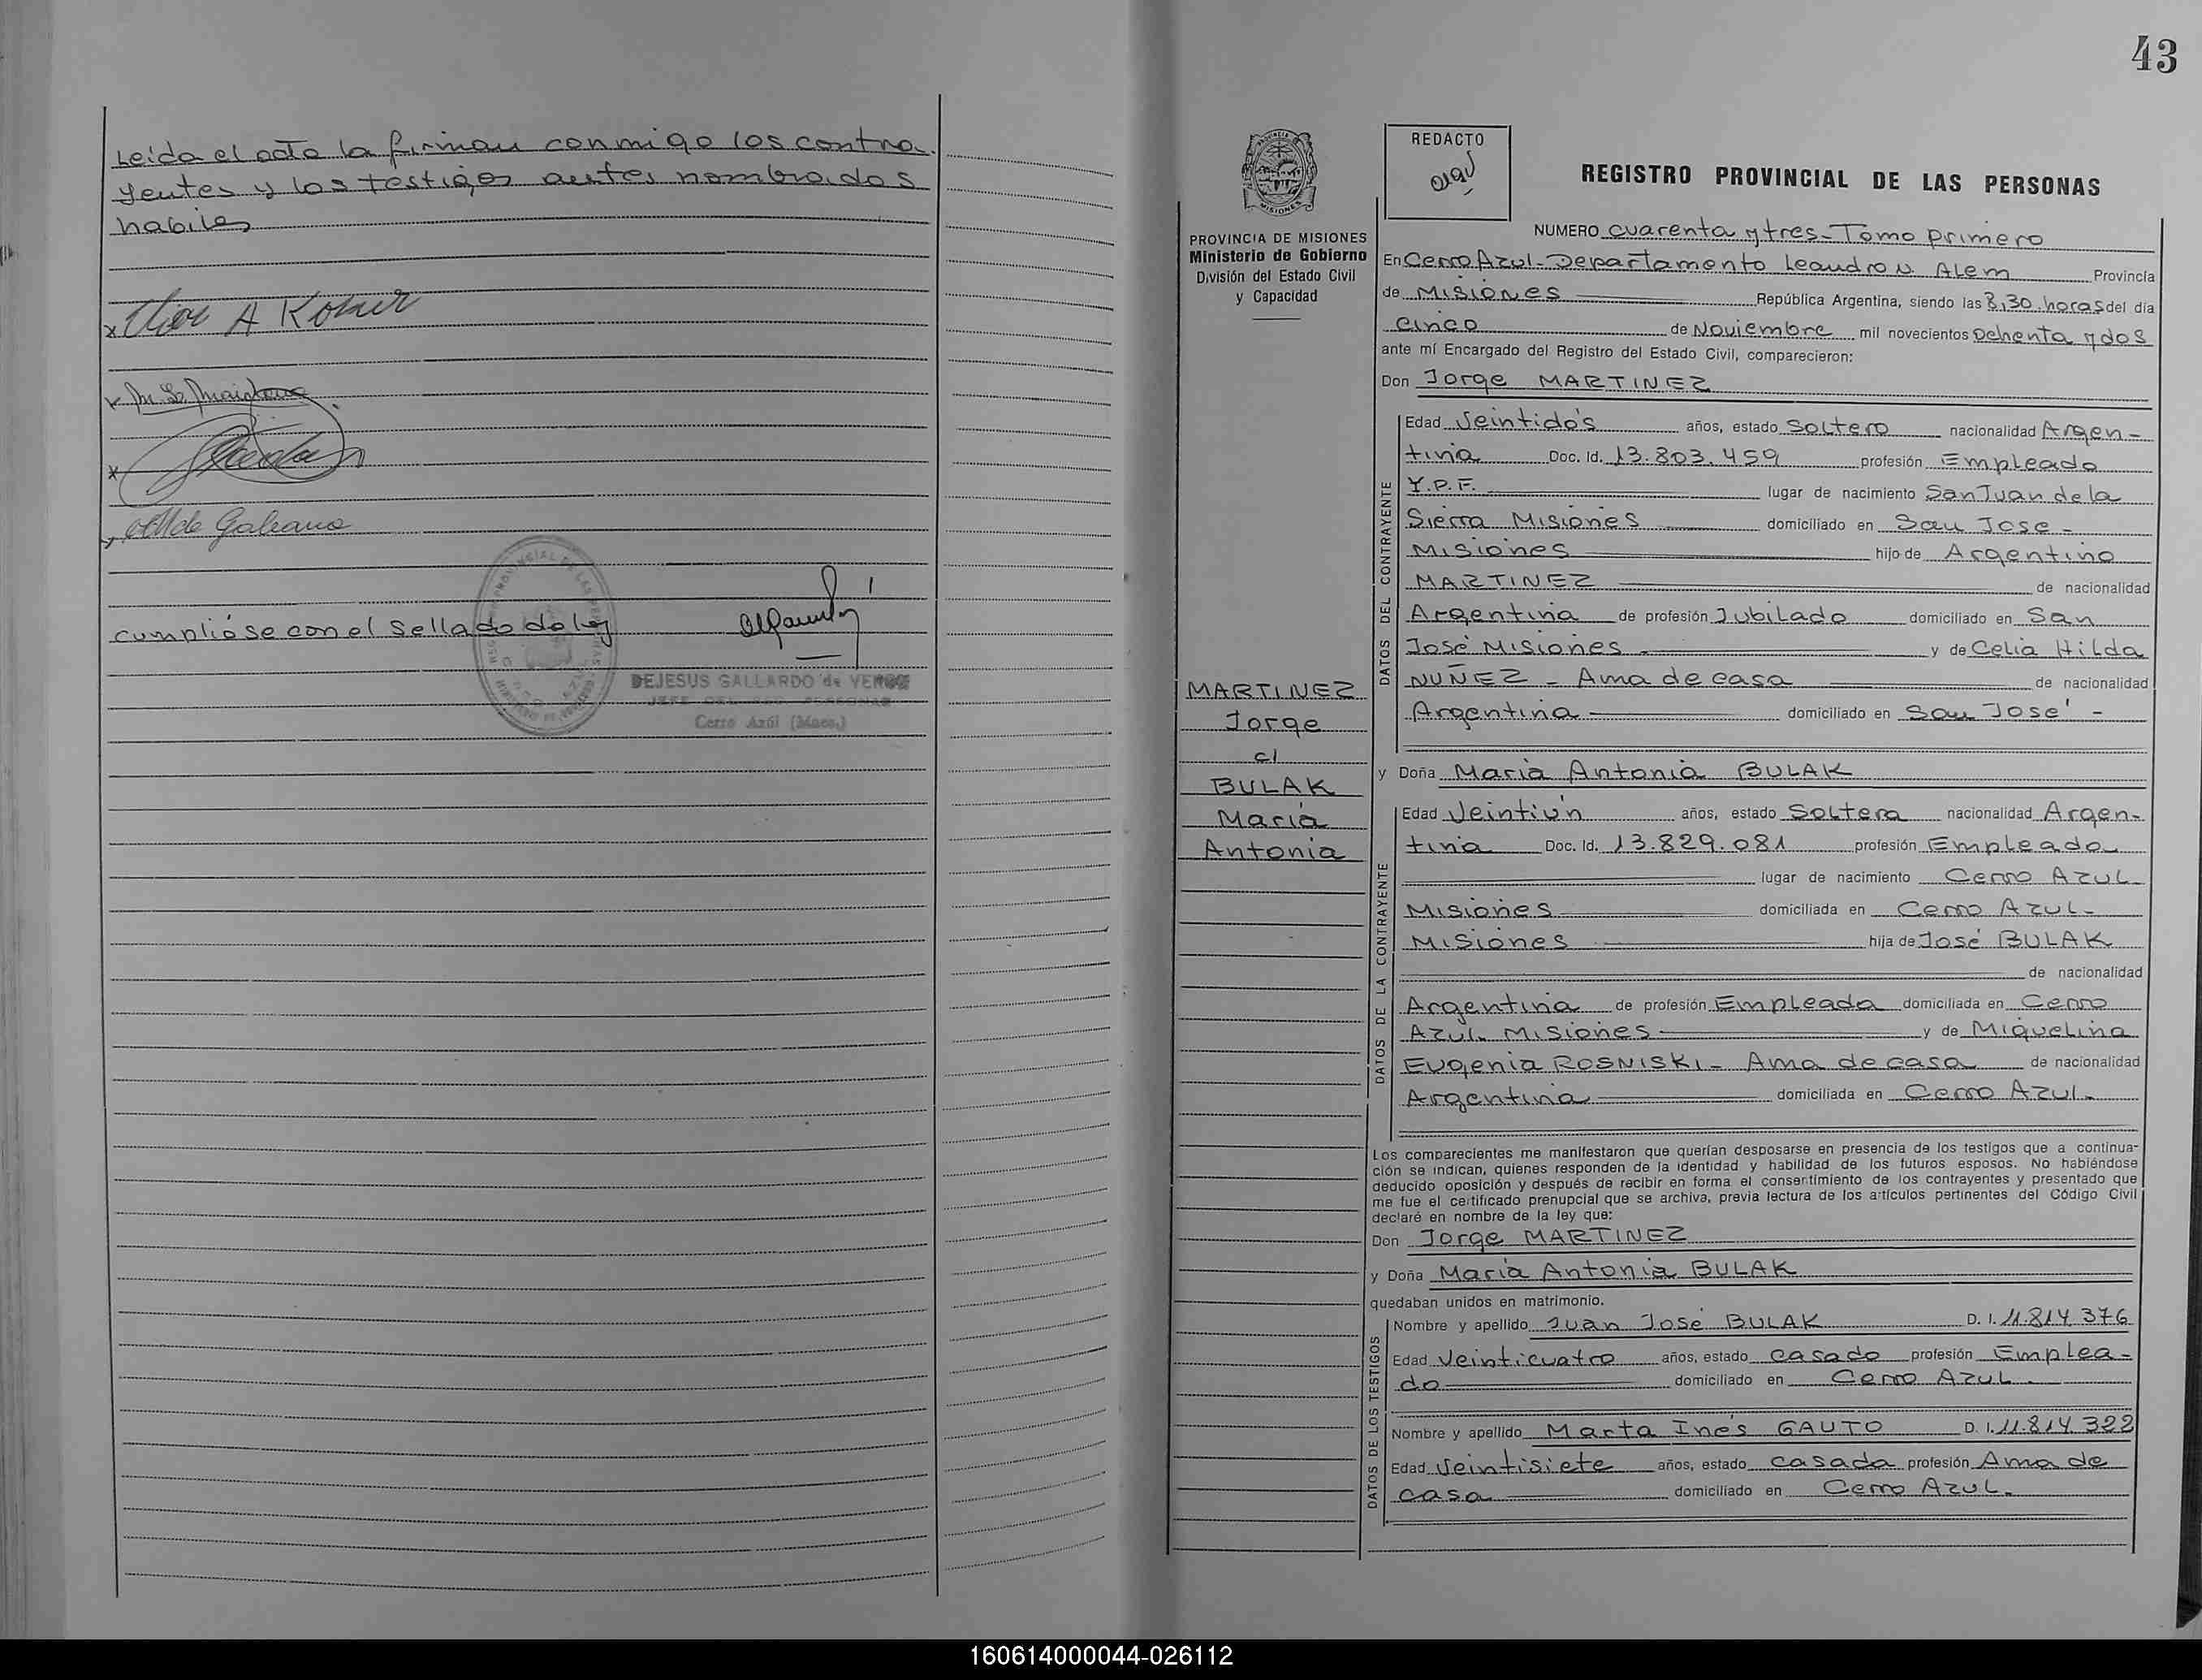 Leida el acta la firman conmigo los contra-
yentes y los testigos antes nombrados
habiles
x A Koher
x
x
cumplióse con el sellado de ley
DEJESUS GALLARDO de
JEFE DEL REG. PERSONAS
Cerro Azúl (Mnes.)
43
PROVINCIA DE MISIONES
Ministerio de Gobierno
División del Estado Civil
y Capacidad
MARTINEZ
Jorge
c/
BULAK
Maria
Antonia
REDACTO
REGISTRO PROVINCIAL DE LAS PERSONAS
NUMERO cuarenta y tres - Tomo primero
En Cerro Azul - Departamento Leandro N. Alem Provincia
de Misiones República Argentina, siendo las 8,30 horas del día
cinco de Noviembre mil novecientos ochenta y dos
ante mí Encargado del Registro del Estado Civil, comparecieron:
Don Jorge MARTINEZ
DATOS DEL CONTRAYENTE
Edad Veintidós años, estado Soltero nacionalidad Argen-
tina Doc. Id. 13.803.459 profesión Empleado
Y.P.F. lugar de nacimiento San Juan de la
Sierra Misiones domiciliado en San Jose -
Misiones hijo de Argentino
MARTINEZ de nacionalidad
Argentina de profesión Jubilado domiciliado en San
José Misiones - y de Celia Hilda
NUÑEZ - Ama de casa de nacionalidad
Argentina domiciliado en San José -
y Doña Maria Antonia BULAK
DATOS DE LA CONTRAYENTE
Edad Veintiún años, estado Soltera nacionalidad Argen-
tina Doc. Id. 13.829.081 profesión Empleada
lugar de nacimiento Cerro Azul
Misiones domiciliada en Cerro Azul -
Misiones hija de José BULAK
de nacionalidad
Argentina de profesión Empleada domiciliada en Cerro
Azul. Misiones y de Miquelina
Eugenia ROSNISKI - Ama de casa de nacionalidad
Argentina domiciliada en Cerro Azul.
Los comparecientes me manifestaron que querían desposarse en presencia de los testigos que a continua-
ción se indican, quienes responden de la identidad y habilidad de los futuros esposos. No habiéndose
deducido oposición y después de recibir en forma el consentimiento de los contrayentes y presentado que
me fue el certificado prenupcial que se archiva, previa lectura de los artículos pertinentes del Código Civil
declaré en nombre de la ley que:
Don Jorge MARTINEZ
y Doña Maria Antonia BULAK
quedaban unidos en matrimonio.
DATOS DE LOS TESTIGOS
Nombre y apellido Juan José BULAK D. I. 11.814.376
Edad Veinticuatro años, estado casado profesión Emplea-
do domiciliado en Cerro Azul.
Nombre y apellido Marta Inés GAUTO D. I. 11.814.322
Edad Veintisiete años, estado casada profesión Ama de
casa domiciliado en Cerro Azul.
160614000044-026112